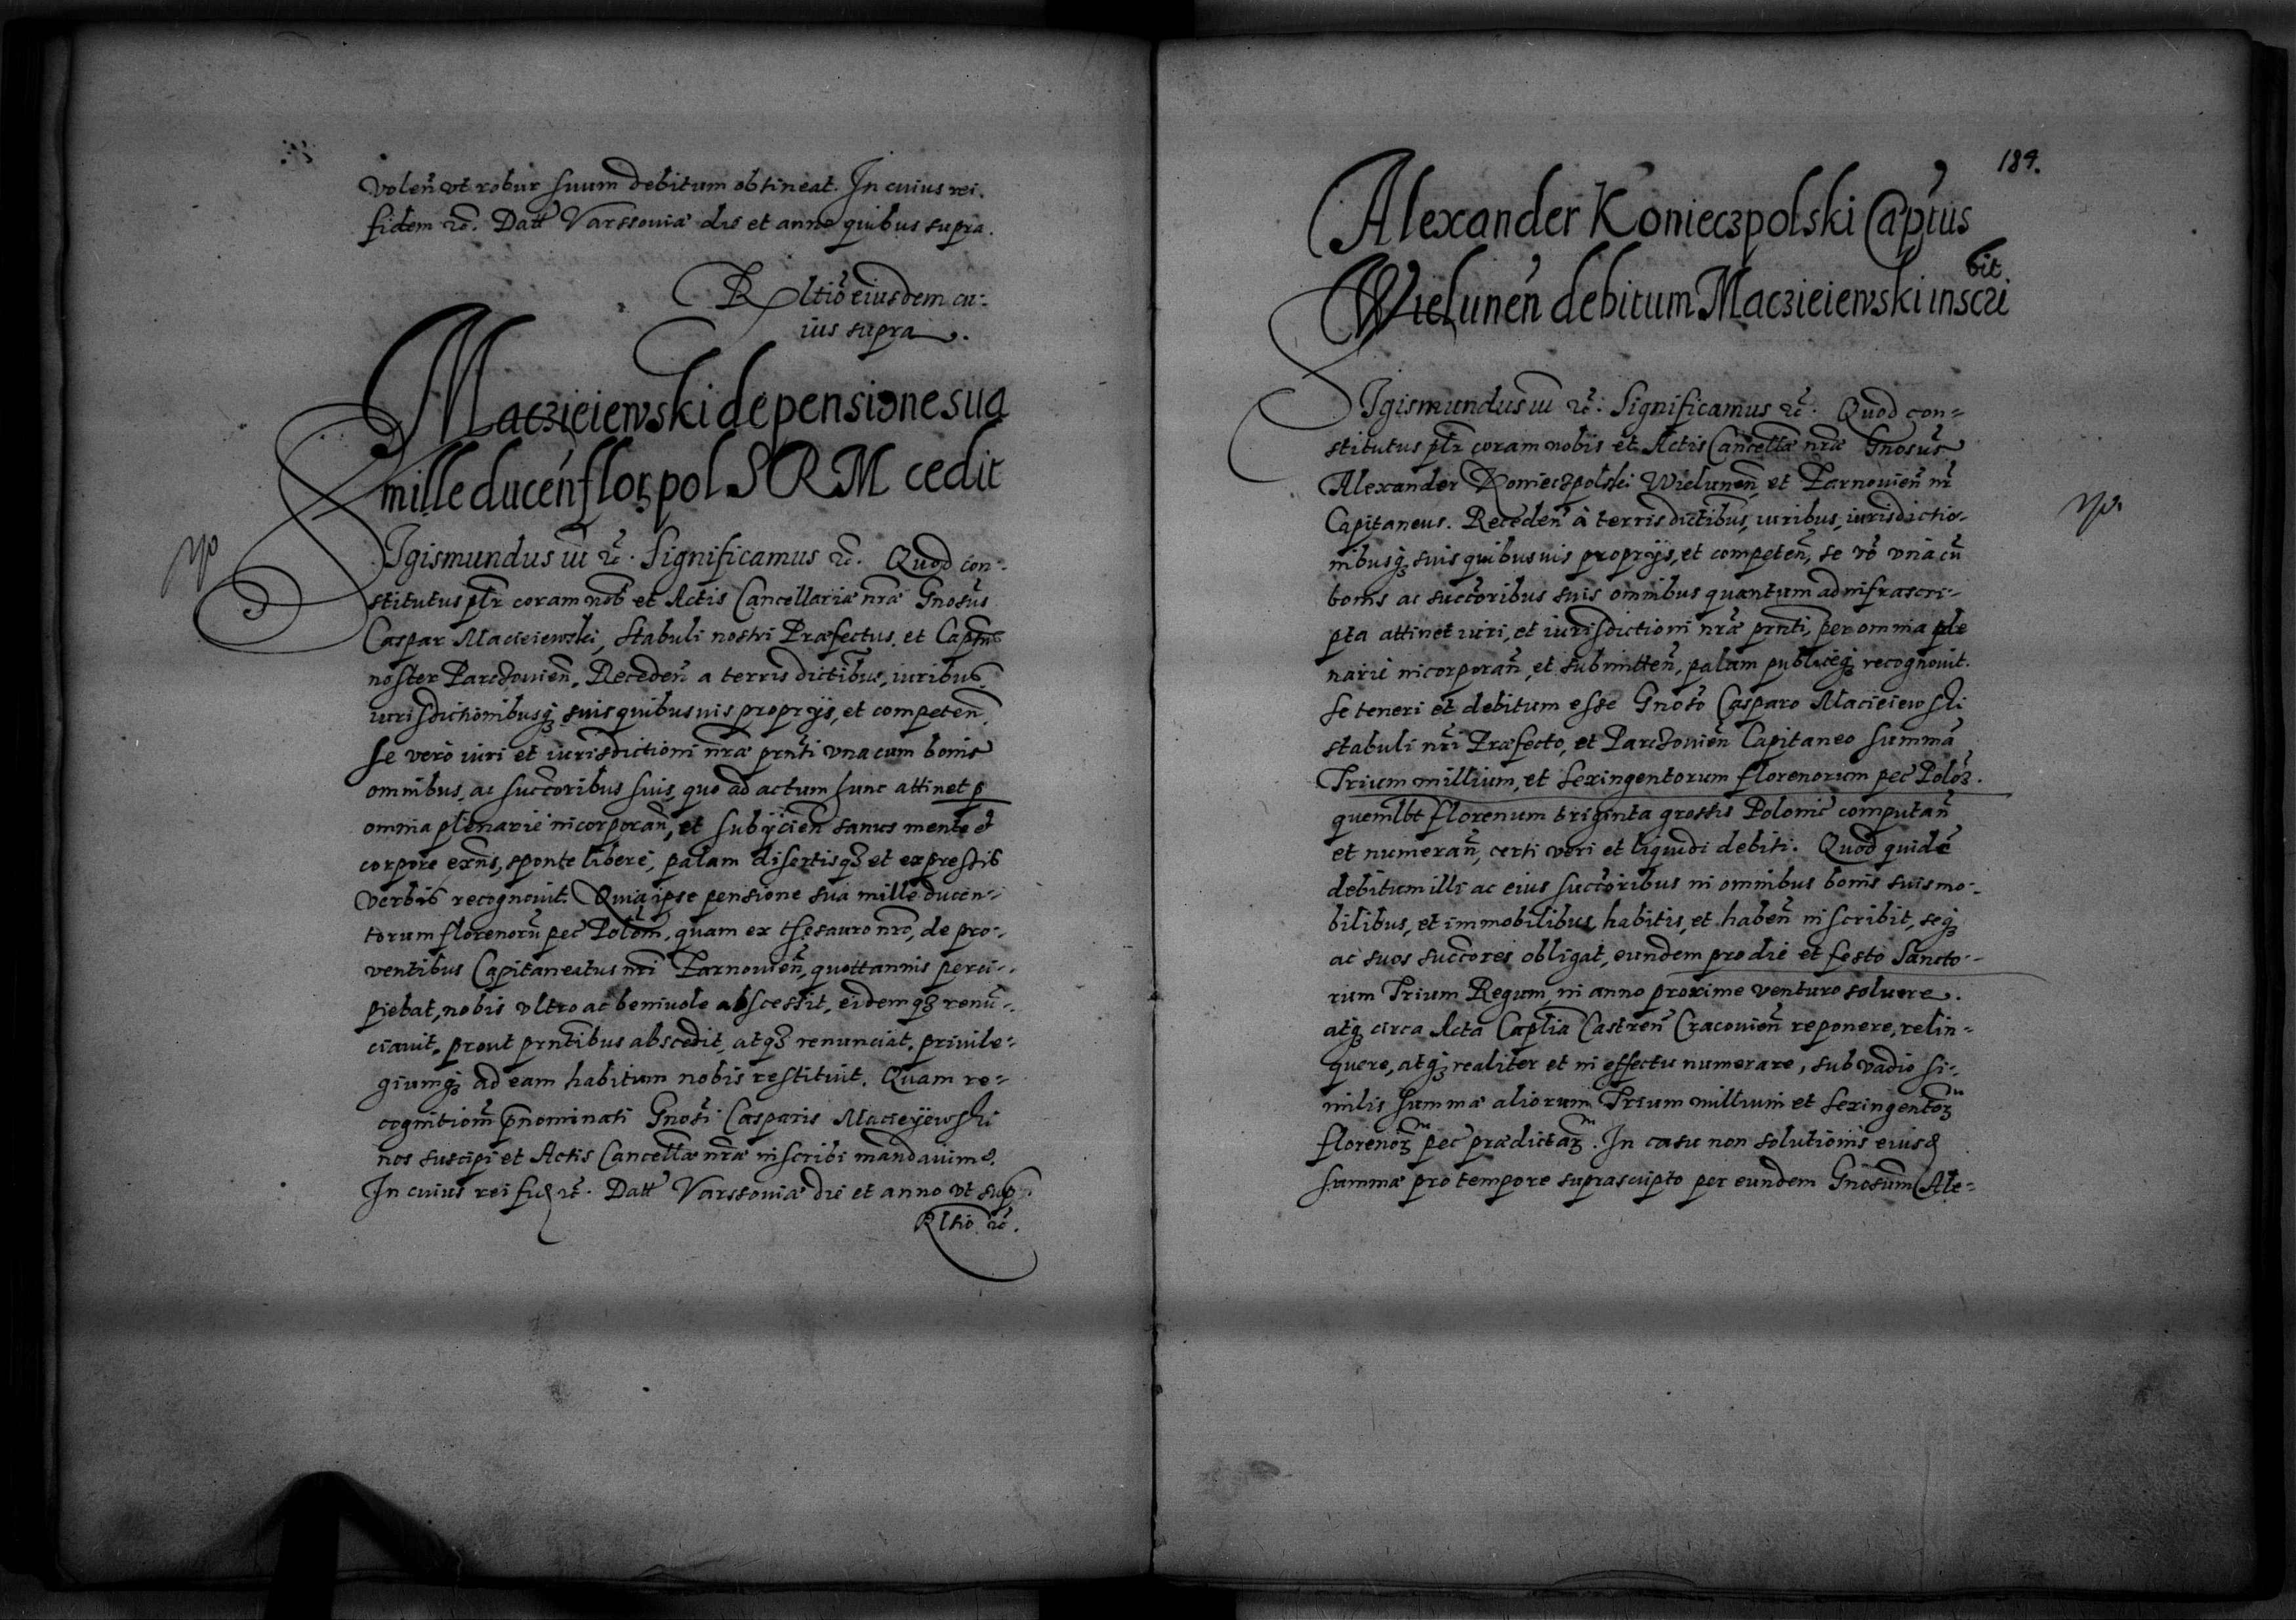 volen̄ vt robur suum debitum obtineat. In cuius rei
fidem etc̄. Datt Varssoviæ die et anno quibus supra.
Rltio eiusdem cu-
ius supra.
Macziejewski de pensione sua
mille ducen̄ flor pol S R M cedit
Sigismundus iii etc̄. Significamus etc̄. Quod con-
stitutus pltr coram nob et Actis Cancellariæ nræ Gnosus
Caspar Macieiewski, Stabuli nostri Præfectus, et Captus
noster Parczouien̄. Receden̄ a terris dictibus, iuribus,
iurisdictionibusq; suis quibusuis proprijs, et competen̄,
se vero iuri et iurisdictioni nræ prnti vna cum bonis
omnibus, ac succoribus suis, quo ad actum hunc attinet p
omnia plenarie incorporan̄, et subijcien̄ sanus mente et
corpore exns, sponte libere, palam disertisq; et expressis
verbis recognouit. Quia ipse pensione sua mille ducen-
torum florenorū pec Polon, quam ex thesauro nro, de pro-
ventibus Capitaneatus nri Tarnouien̄, quottannis perci-
piebat, nobis vltro ac beniuole abscessit, eidemq; renū-
ciauit, prout prntibus abscedit, atq; renunciat, priuile-
giumq; ad eam habitum nobis restituit. Quam re-
cognitiom̄ p̄nominati Gnosi Casparis Macieyewski
nos suscipi et Actis Cancellæ nræ inscribi mandauim9.
In cuius rei fid etc̄. Datt Varssoviæ die et anno vt sup
Rltio etc̄.
184.
Alexander Konieczpolski Captus
Wielunen̄ debitum Maczieiewski inscri
bit
Sigismundus iii etc̄. Significamus etc̄. Quod con-
stitutus pltr coram nobis et Actis Cancellæ nræ Gnosus
Alexander Konieczpolski Wielunen̄, et Tarnouien̄ nr
Capitaneus. Receden̄ à terris dictibus, iuribus, iurisdictio-
nibusq; suis quibusuis proprijs, et competen̄, se vō vna cū
bonis ac succoribus suis omnibus quantum ad infrascri-
pta attinet iuri, et iurisdictioni nræ prnti, per omnia ple
narie incorporan̄, et submitten̄, palam publiceq; recognouit.
Se teneri et debitum esse Gnoso Casparo Macieiewski
stabuli nri Præfecto, et Parczouien̄ Capitaneo summā
Trium millium, et sexingentorum florenorum pec Poloz.
quemlbt florenum triginta grossis Polonic computan̄
et numeran̄, certi veri et liquidi debiti. Quod quidē
debitum illi ac eius succoribus in omnibus bonis suis mo-
bilibus, et immobilibus, habitis, et haben̄ inscribit, seq;
ac suos succores obligat, eundem pro die et festo Sancto-
rum Trium Regum, in anno proxime venturo soluere.
atq; circa Acta Caplia Castren̄ Cracouien̄ reponere, relin-
quere, atq; realiter et in effectu numerare, sub vadio si-
milis summæ aliorum Trium millium et sexingentorz
florenorz pec prædictarz. In casu non solutionis eiusd
summæ pro tempore suprascripto per eundem Gnosum Ale-